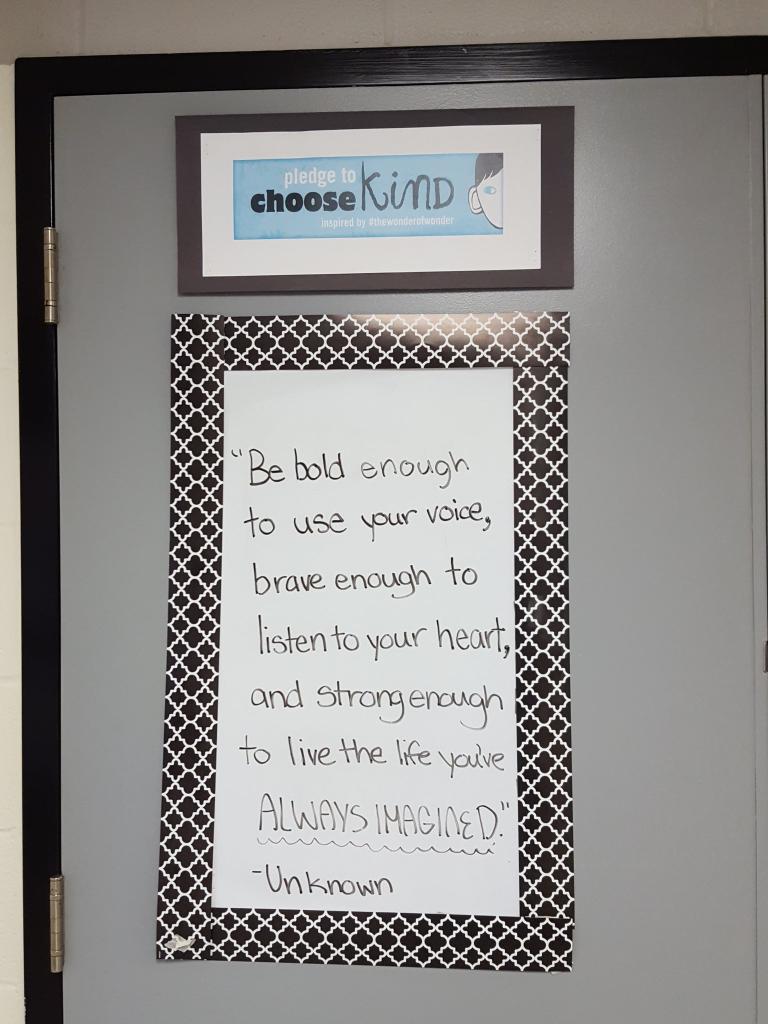 pledge to
choose KIND
inspired by #thewonderofwonder
"Be bold enough
to use your voice,
brave enough to
listen to your heart,
and strong enough
to live the life you've
ALWAYS IMAGINED."
-Unknown